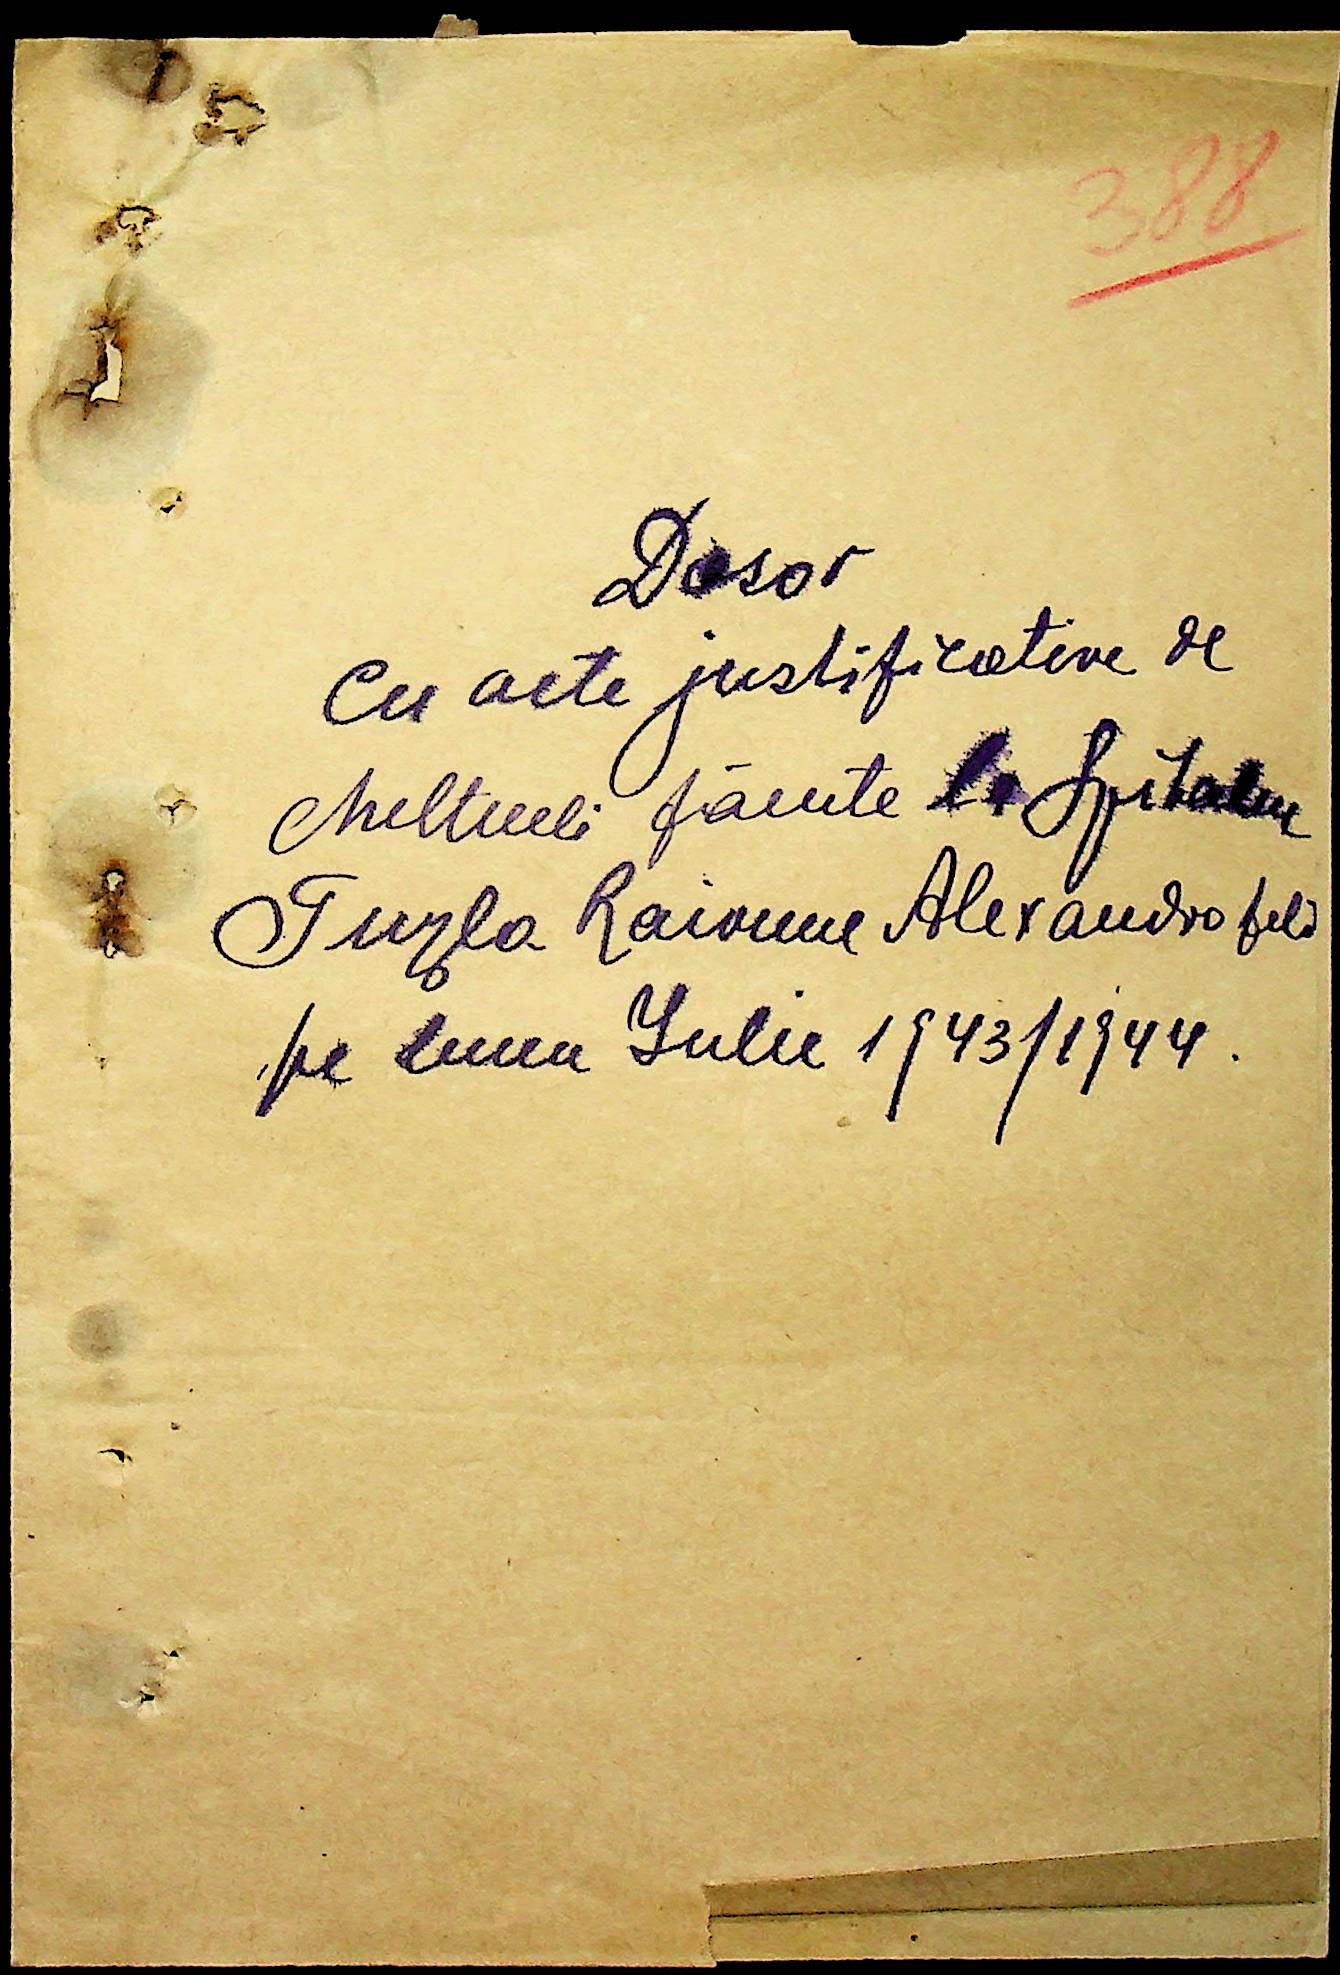 388
Dosar
Cu acte justificative de
cheltueli făcute la Spitalu
Tuzla Raionul Alexandrofeld
pe luna Iulie 1943/1944.